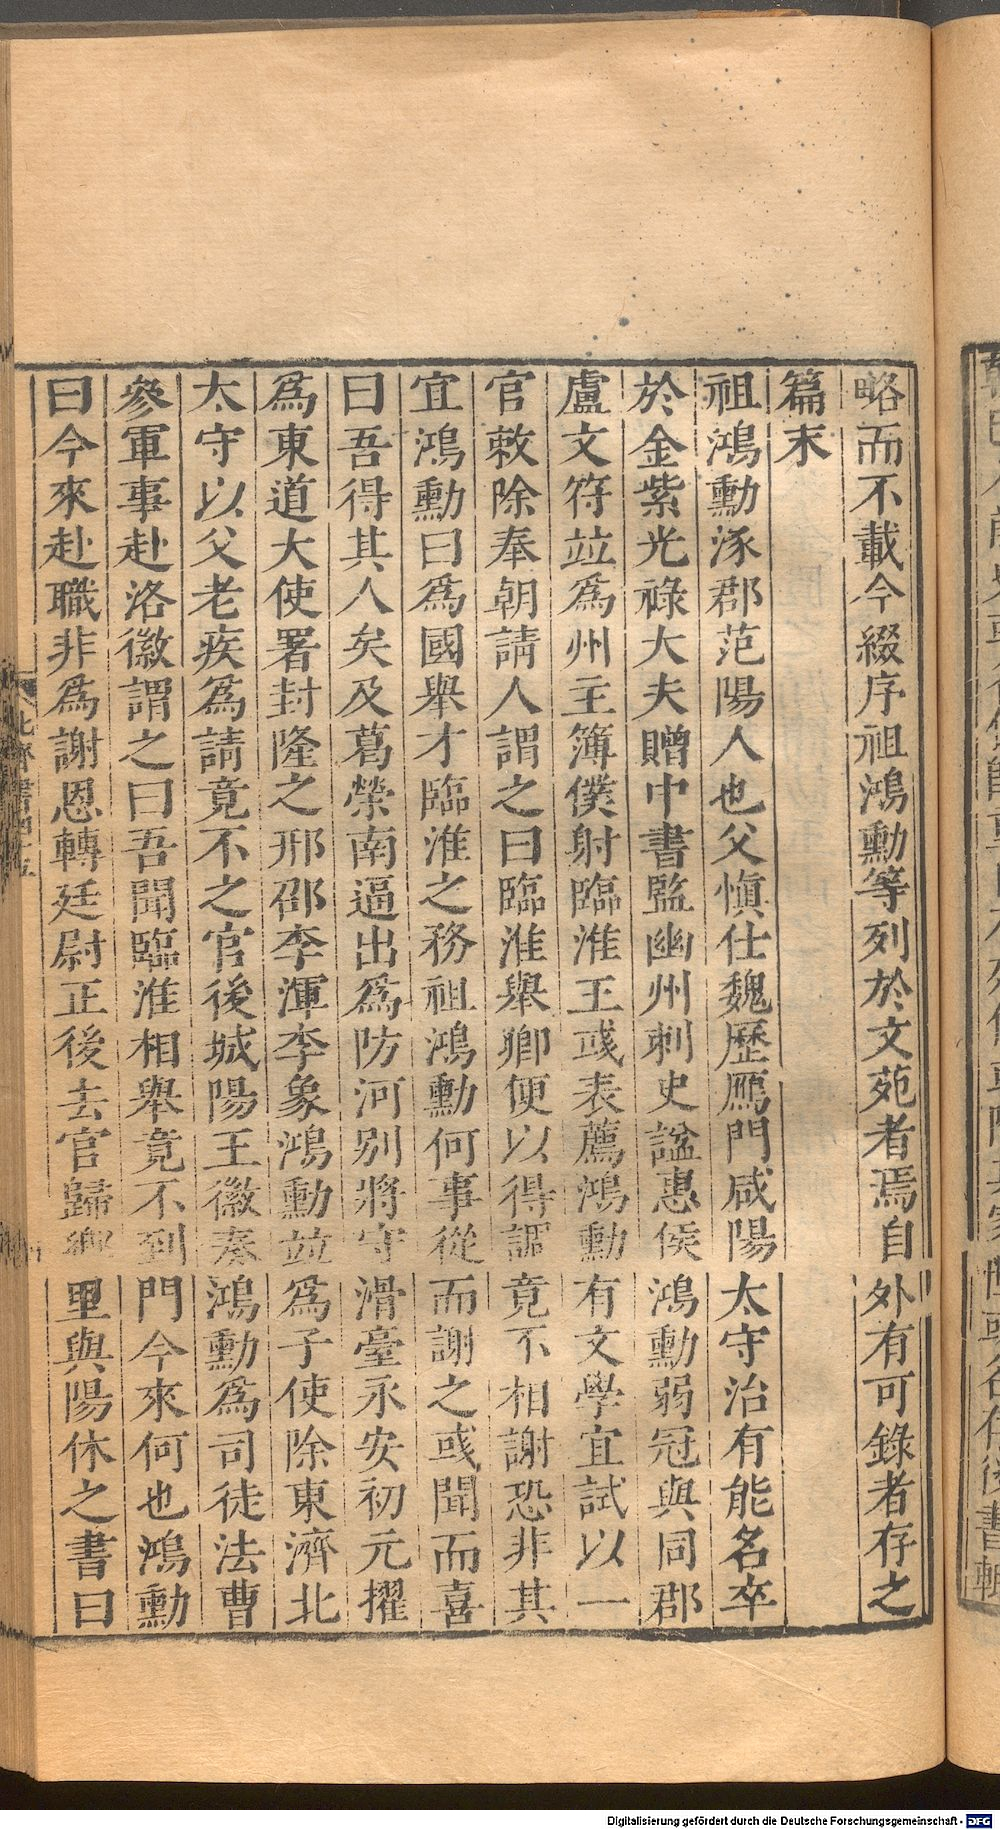 略而不載今綴序祖鴻勳等列於文苑者焉自外有可錄者存之
篇末
祖鴻勳涿郡范陽人也父愼仕魏歷鴈門咸陽太守治有能名卒
於金紫光祿大夫贈中書監幽州刺史諡惠侯鴻勳弱冠與同郡
盧文符竝爲州主簿僕射臨淮王彧表薦鴻勳有文學宜試以一
官敕除奉朝請人謂之曰臨淮舉卿便以得調竟不相謝恐非其
宜鴻勳曰爲國舉才臨淮之務祖鴻勳何事從而謝之彧聞而喜
曰吾得其人矣及葛榮南逼出爲防河别將守滑臺永安初元擢
爲東道大使署封隆之邢邵李渾李象鴻勳竝爲子使除東濟北
太守以父老疾爲請竟不之官後城陽王徽奏鴻勳爲司徒法曹
參軍事赴洛徽謂之曰吾聞臨淮相舉竟不到門今來何也鴻勳
曰今來赴職非爲謝恩轉廷尉正後去官歸鄉里與陽休之書曰
北齊書四十五
Digitalisierung gefördert durch die Deutsche Forschungsgemeinschaft - DFG